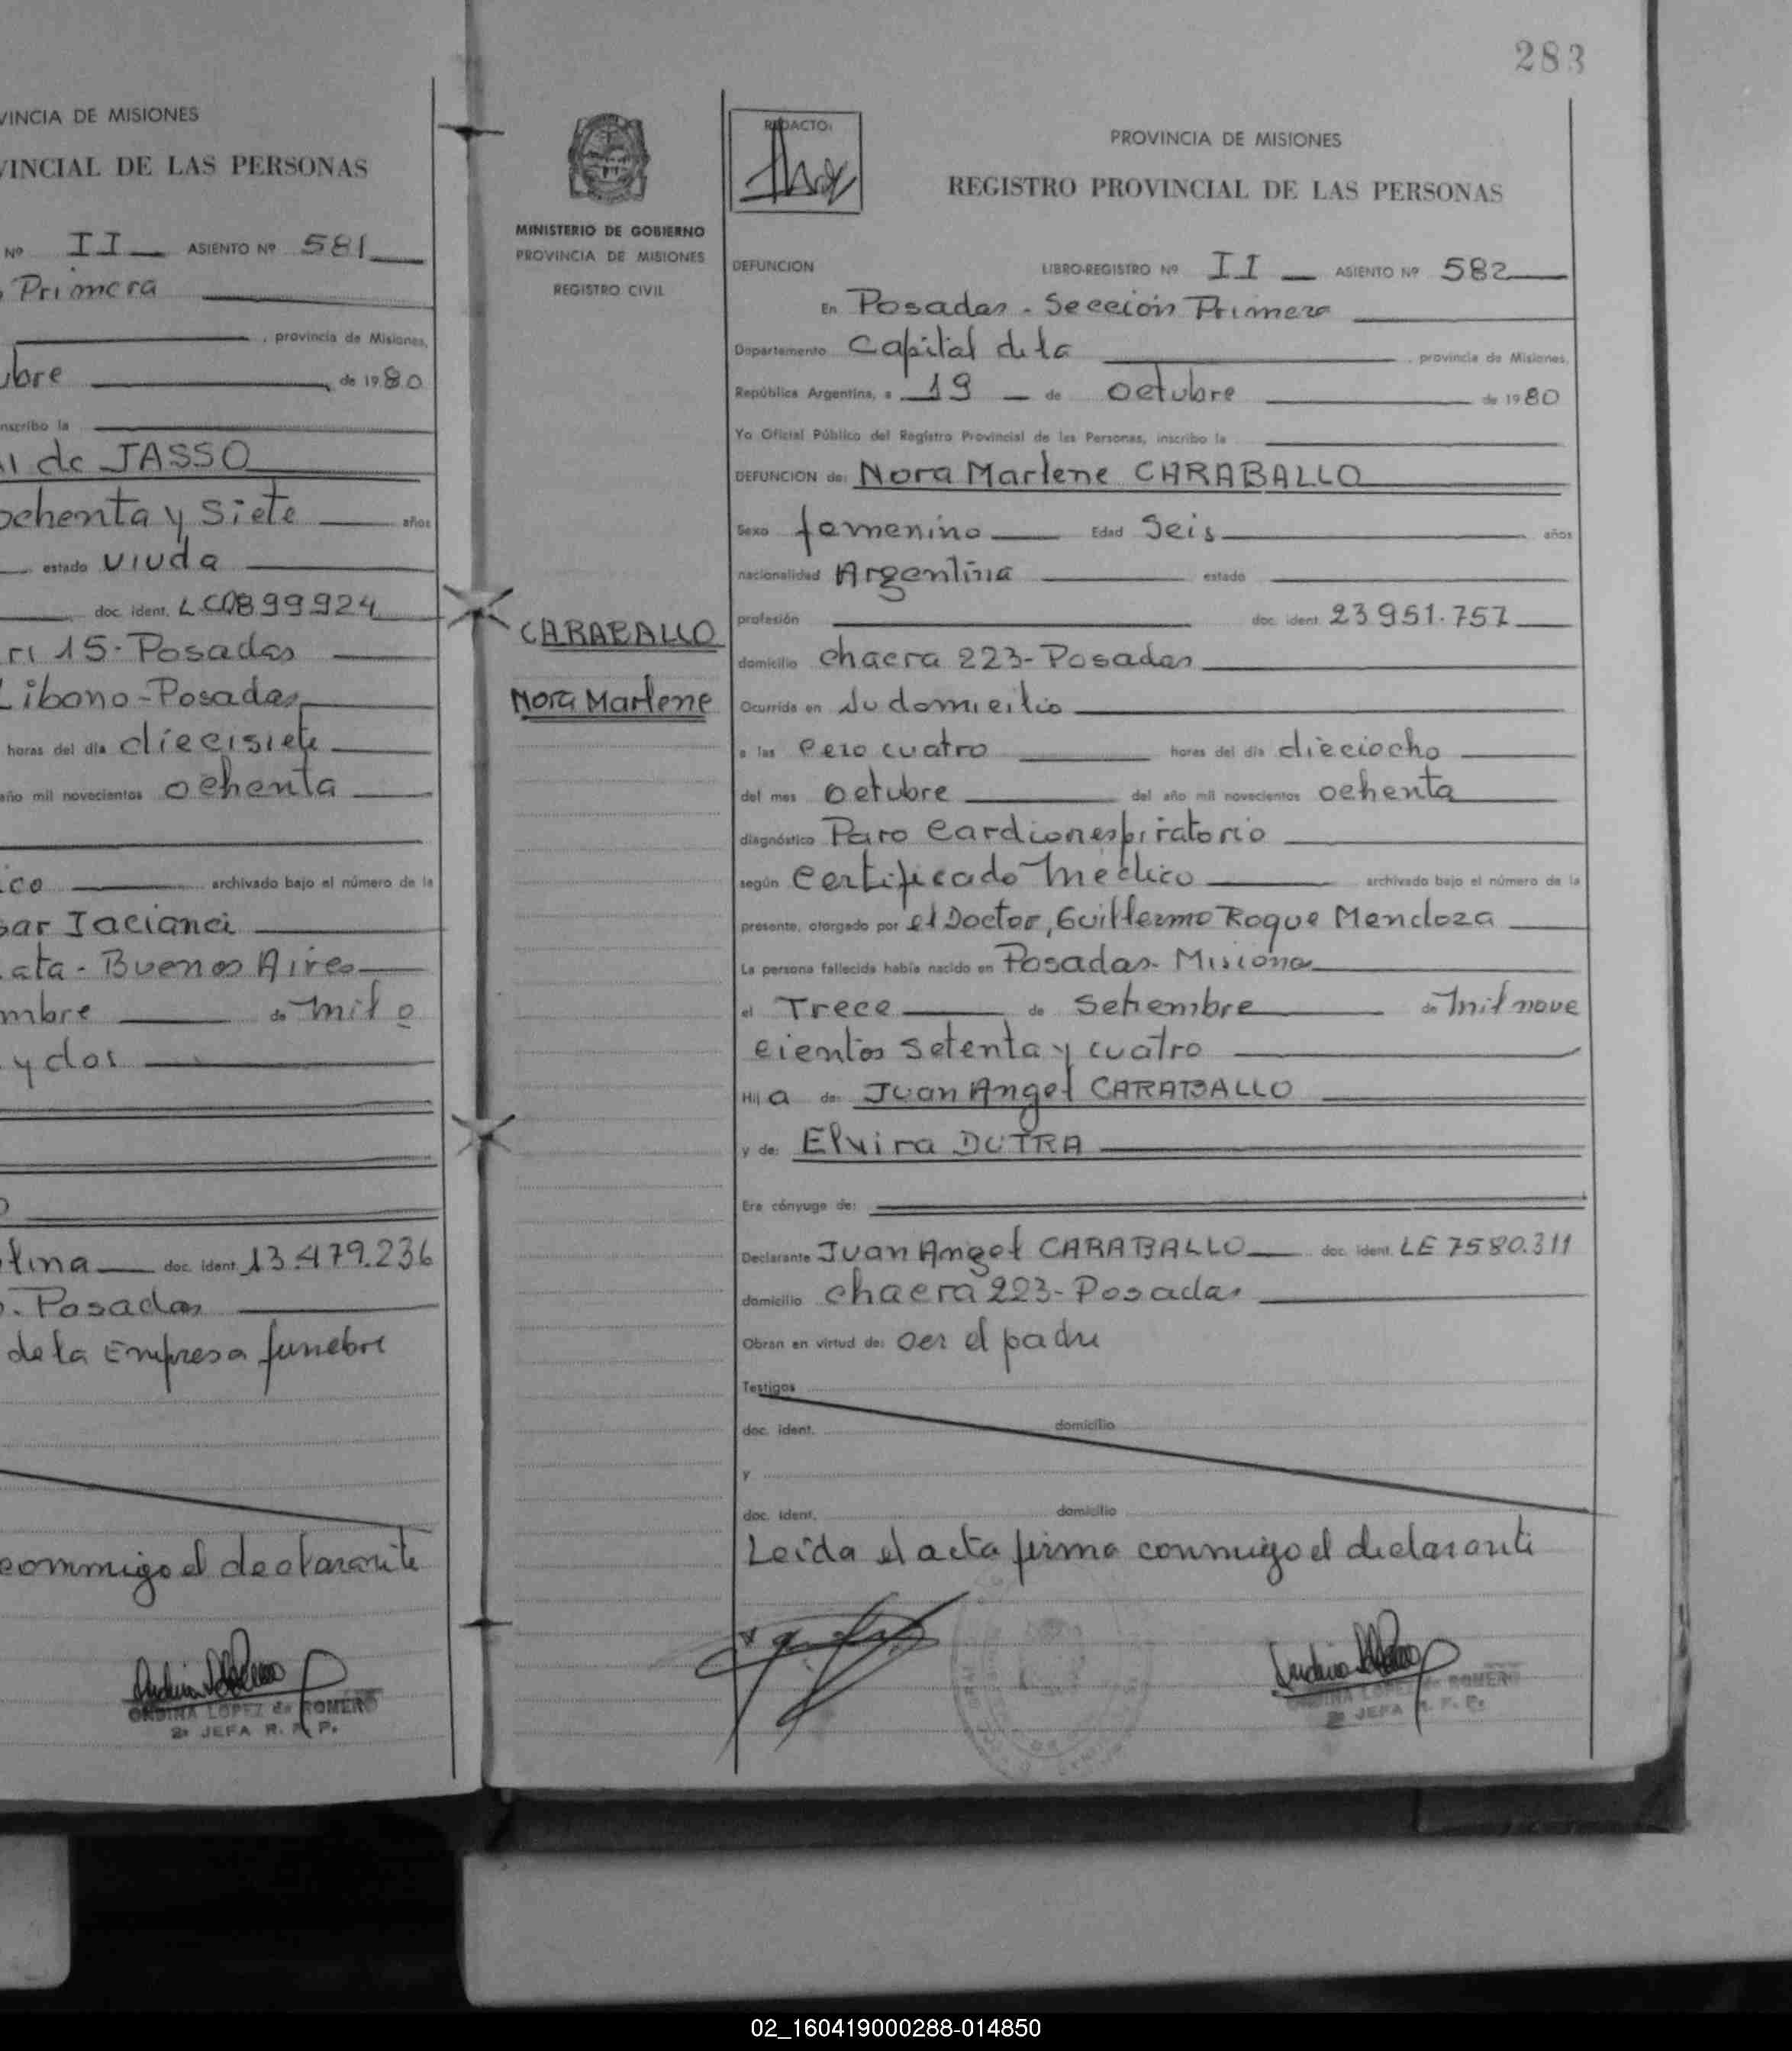 VINCIA DE MISIONES
VINCIAL DE LAS PERSONAS
Nº II ASIENTO Nº 581
Primera
, provincia de Misiones,
ubre de 1980
nscribo la
de JASSO
ochenta y siete años
estado viuda
doc. ident. LC0899924
ri 15-Posadas
Libano-Posadas
horas del día diecisiete
año mil novecientos ochenta
ico archivado bajo el número de la
sar Iacianci
ata-Buenos Aires
mbre de mil o
y dos
tina doc. ident. 13.479.236
. Posadas
de la Empresa funebre
conmigo el declarante
ONDINA LOPEZ de ROMERO
2ª JEFA R. P. P.
283
MINISTERIO DE GOBIERNO
PROVINCIA DE MISIONES
REGISTRO CIVIL
CARABALLO
Nora Marlene
REDACTO:
PROVINCIA DE MISIONES
REGISTRO PROVINCIAL DE LAS PERSONAS
DEFUNCION LIBRO-REGISTRO Nº II ASIENTO Nº 582
En Posadas - Sección Primera
Departamento Capital de la , provincia de Misiones,
República Argentina, a 19 de octubre de 1980
Yo Oficial Público del Registro Provincial de las Personas, inscribo la
DEFUNCION de: Nora Marlene CARABALLO
Sexo femenino Edad Seis años
nacionalidad Argentina estado
profesión doc. ident. 23.951.757
domicilio chacra 223-Posadas
Ocurrida en su domicilio
a las cero cuatro horas del día dieciocho
del mes octubre del año mil novecientos ochenta
diagnóstico Paro cardiorespiratorio
según certificado médico archivado bajo el número de la
presente, otorgado por el Doctor, Guillermo Roque Mendoza
La persona fallecida había nacido en Posadas-Misiones
el Trece de Setiembre de mil nove
cientos setenta y cuatro
Hija de: Juan Angel CARABALLO
y de: Elvira DUTRA
Era cónyuge de:
Declarante Juan Angel CARABALLO doc. ident. LE 7580.311
domicilio chacra 223-Posadas
Obran en virtud de: ser el padre
Testigos
doc. ident. domicilio
y
doc. ident. domicilio
Leída el acta firma conmigo el declarante
ONDINA LOPEZ de ROMERO
2ª JEFA R. P. P.
02_160419000288-014850